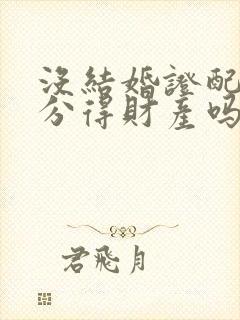 沒結婚證配
分得財產吗
君飛月